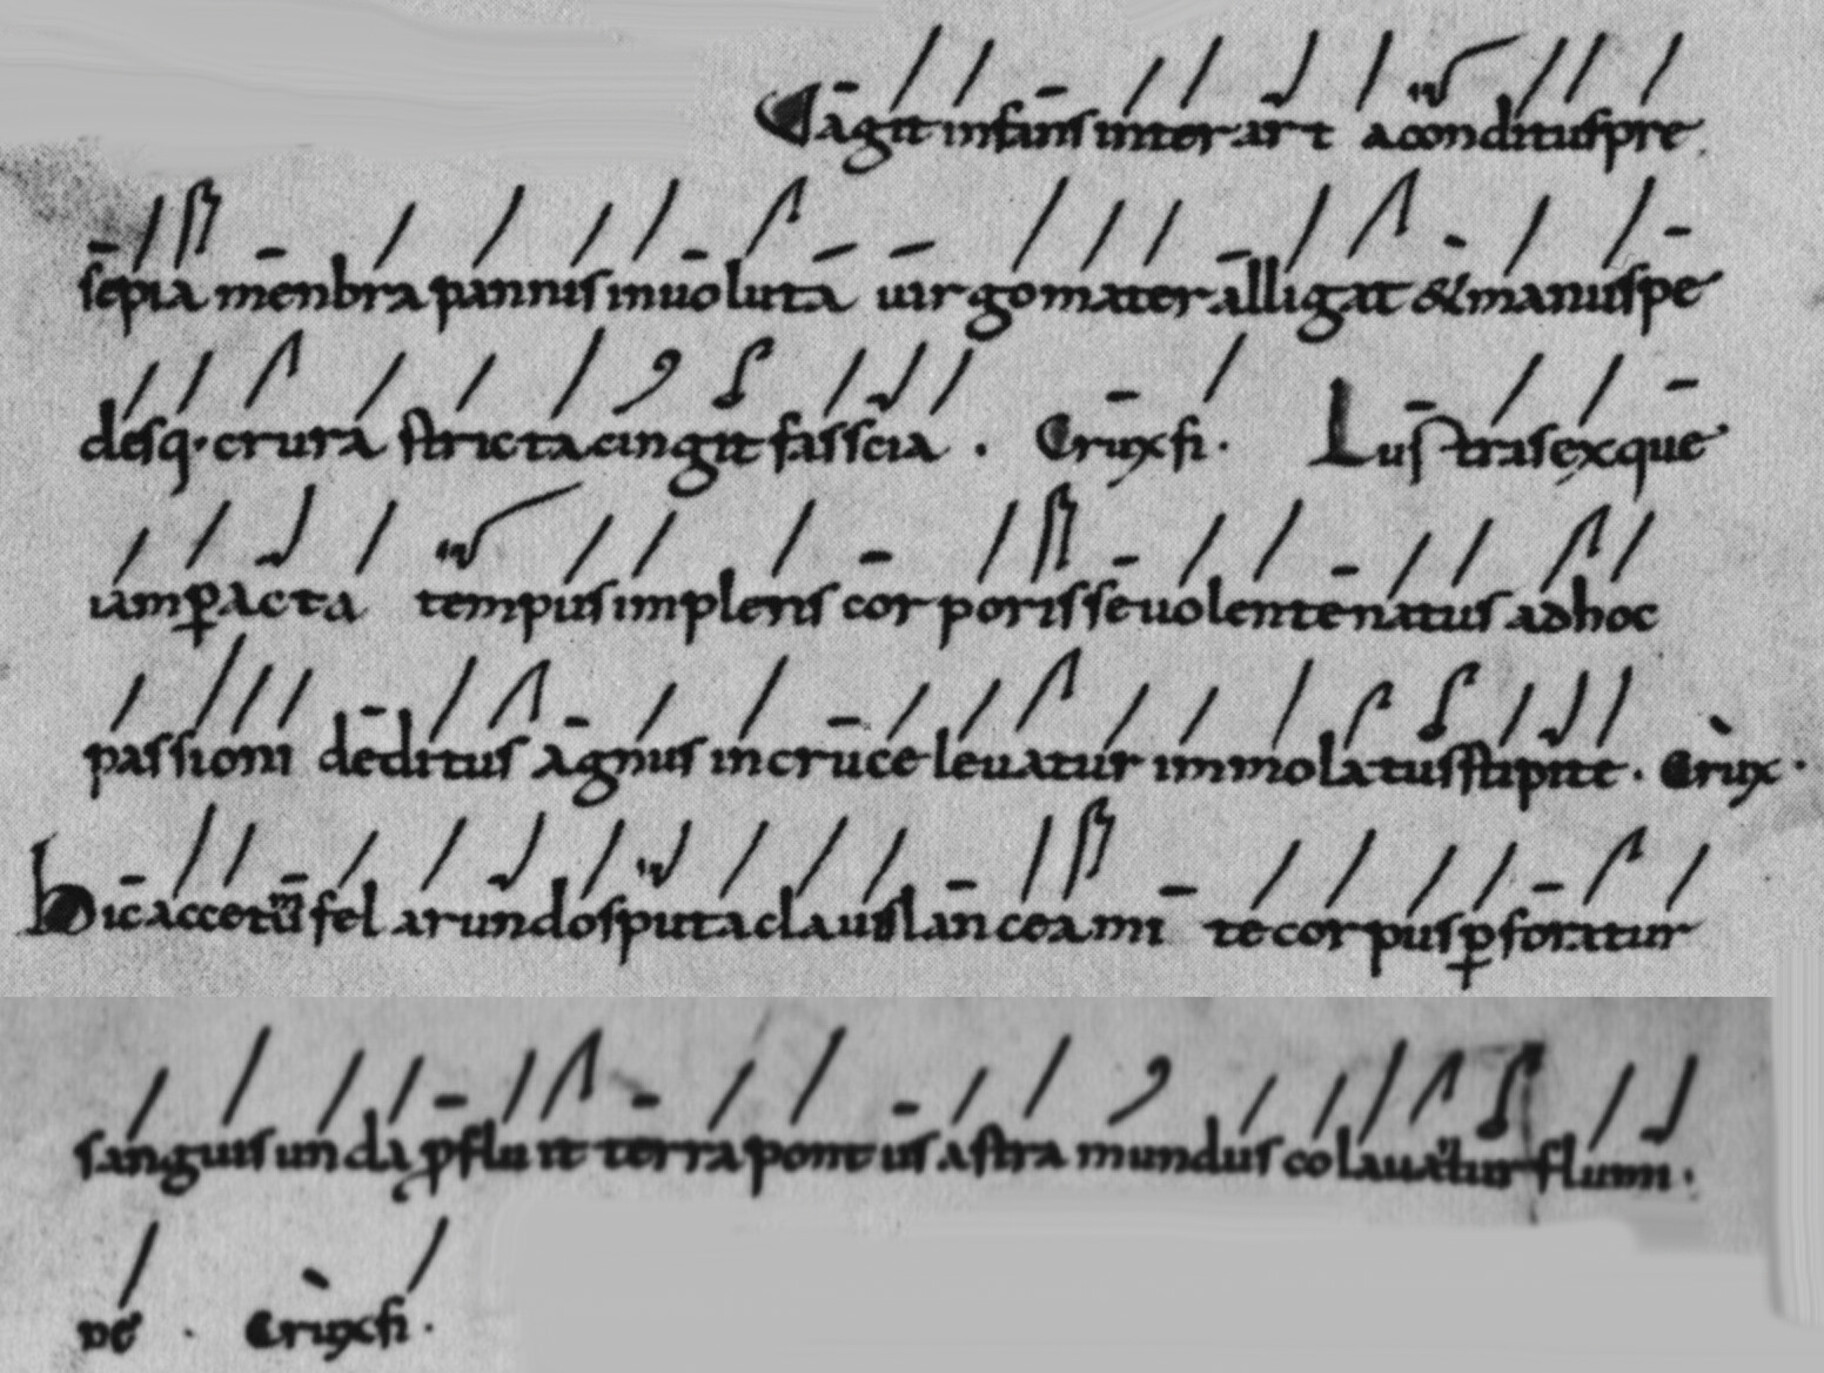 Uagit infans inter arta conditus pre
sepia menbra pannis inuoluta uirgo mater alligat & manus pe
desq· crura stricta cingit fasscia . Crux fi· Lustra sex que
iam ꝑacta tempus implens corporis se uolente natus ad hoc
passioni deditus agnus in cruce leuatur immolatus stipite · Crux ·
hic accetū fel arundo sputa claui lancea mite corpus ꝑforatur
sanguis unda ꝓfluit terra pontus astra mundus colauatur flumi ·
ne . Crux fi·